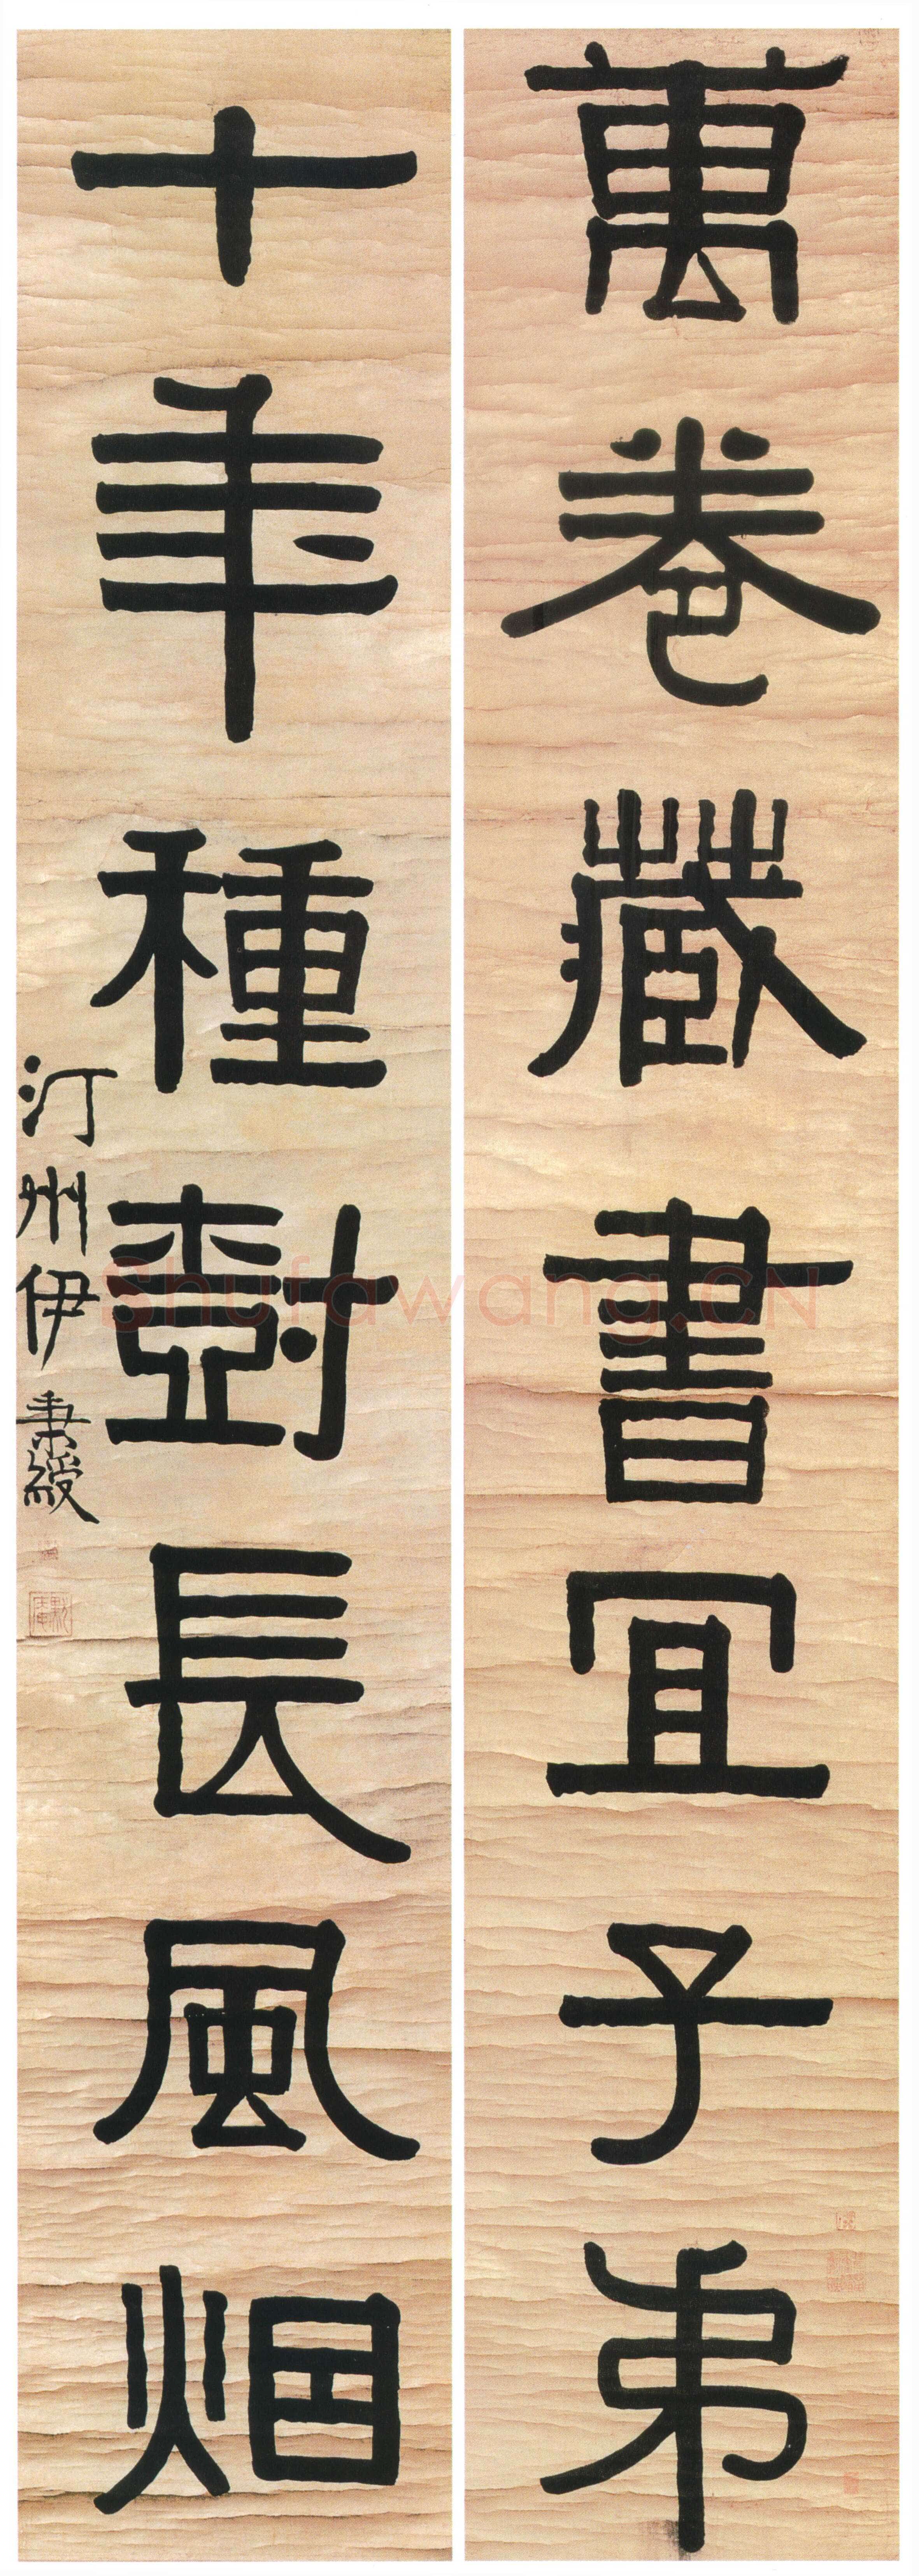 萬卷藏書宜子弟
十年種樹長風烟
汀州伊秉綬
Shufawang.CN